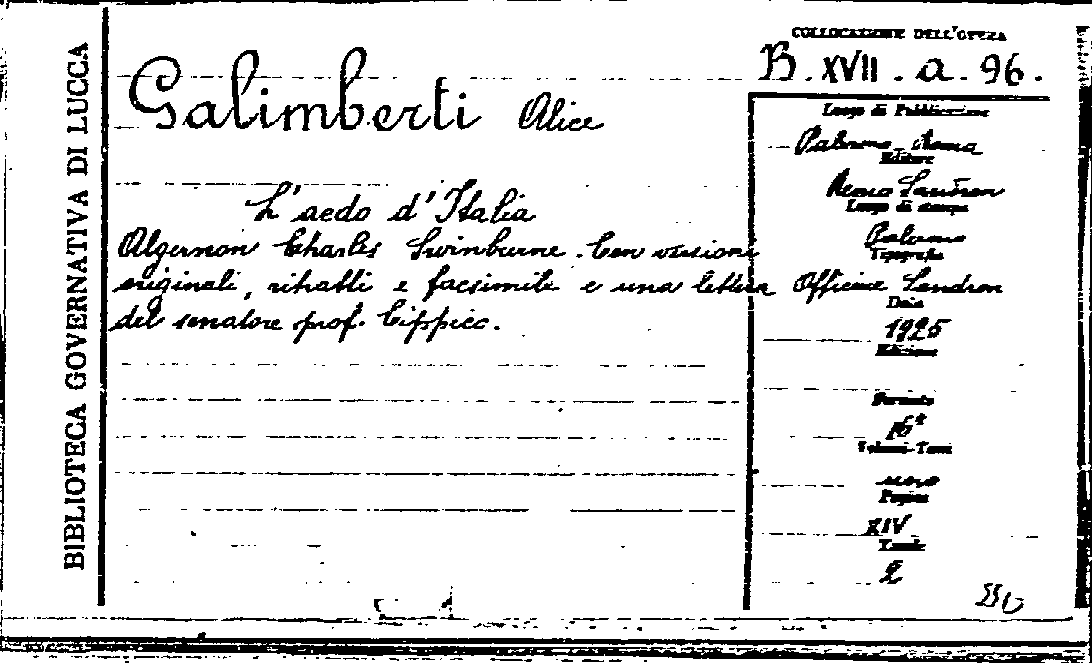 BIBLIOTECA GOVERNATIVA DI LUCCA
COLLOCAZIONE DELL'OPERA
B. XVII. a. 96.
Galimberti Alice
L'aedo d'Italia
Algernon Charles Swinburne. Con versioni
originali, ritratti e facsimili e una lettera
del senatore prof. Cippico.
Luogo di Pubblicazione
Palermo Roma
Editore
Remo Sandron
Luogo di stampa
Palermo
Tipografia
Officine Sandron
Data
1925
Edizione
Formato
16°
Volumi-Tomi
uno
Pagine
XIV
Tavole
2